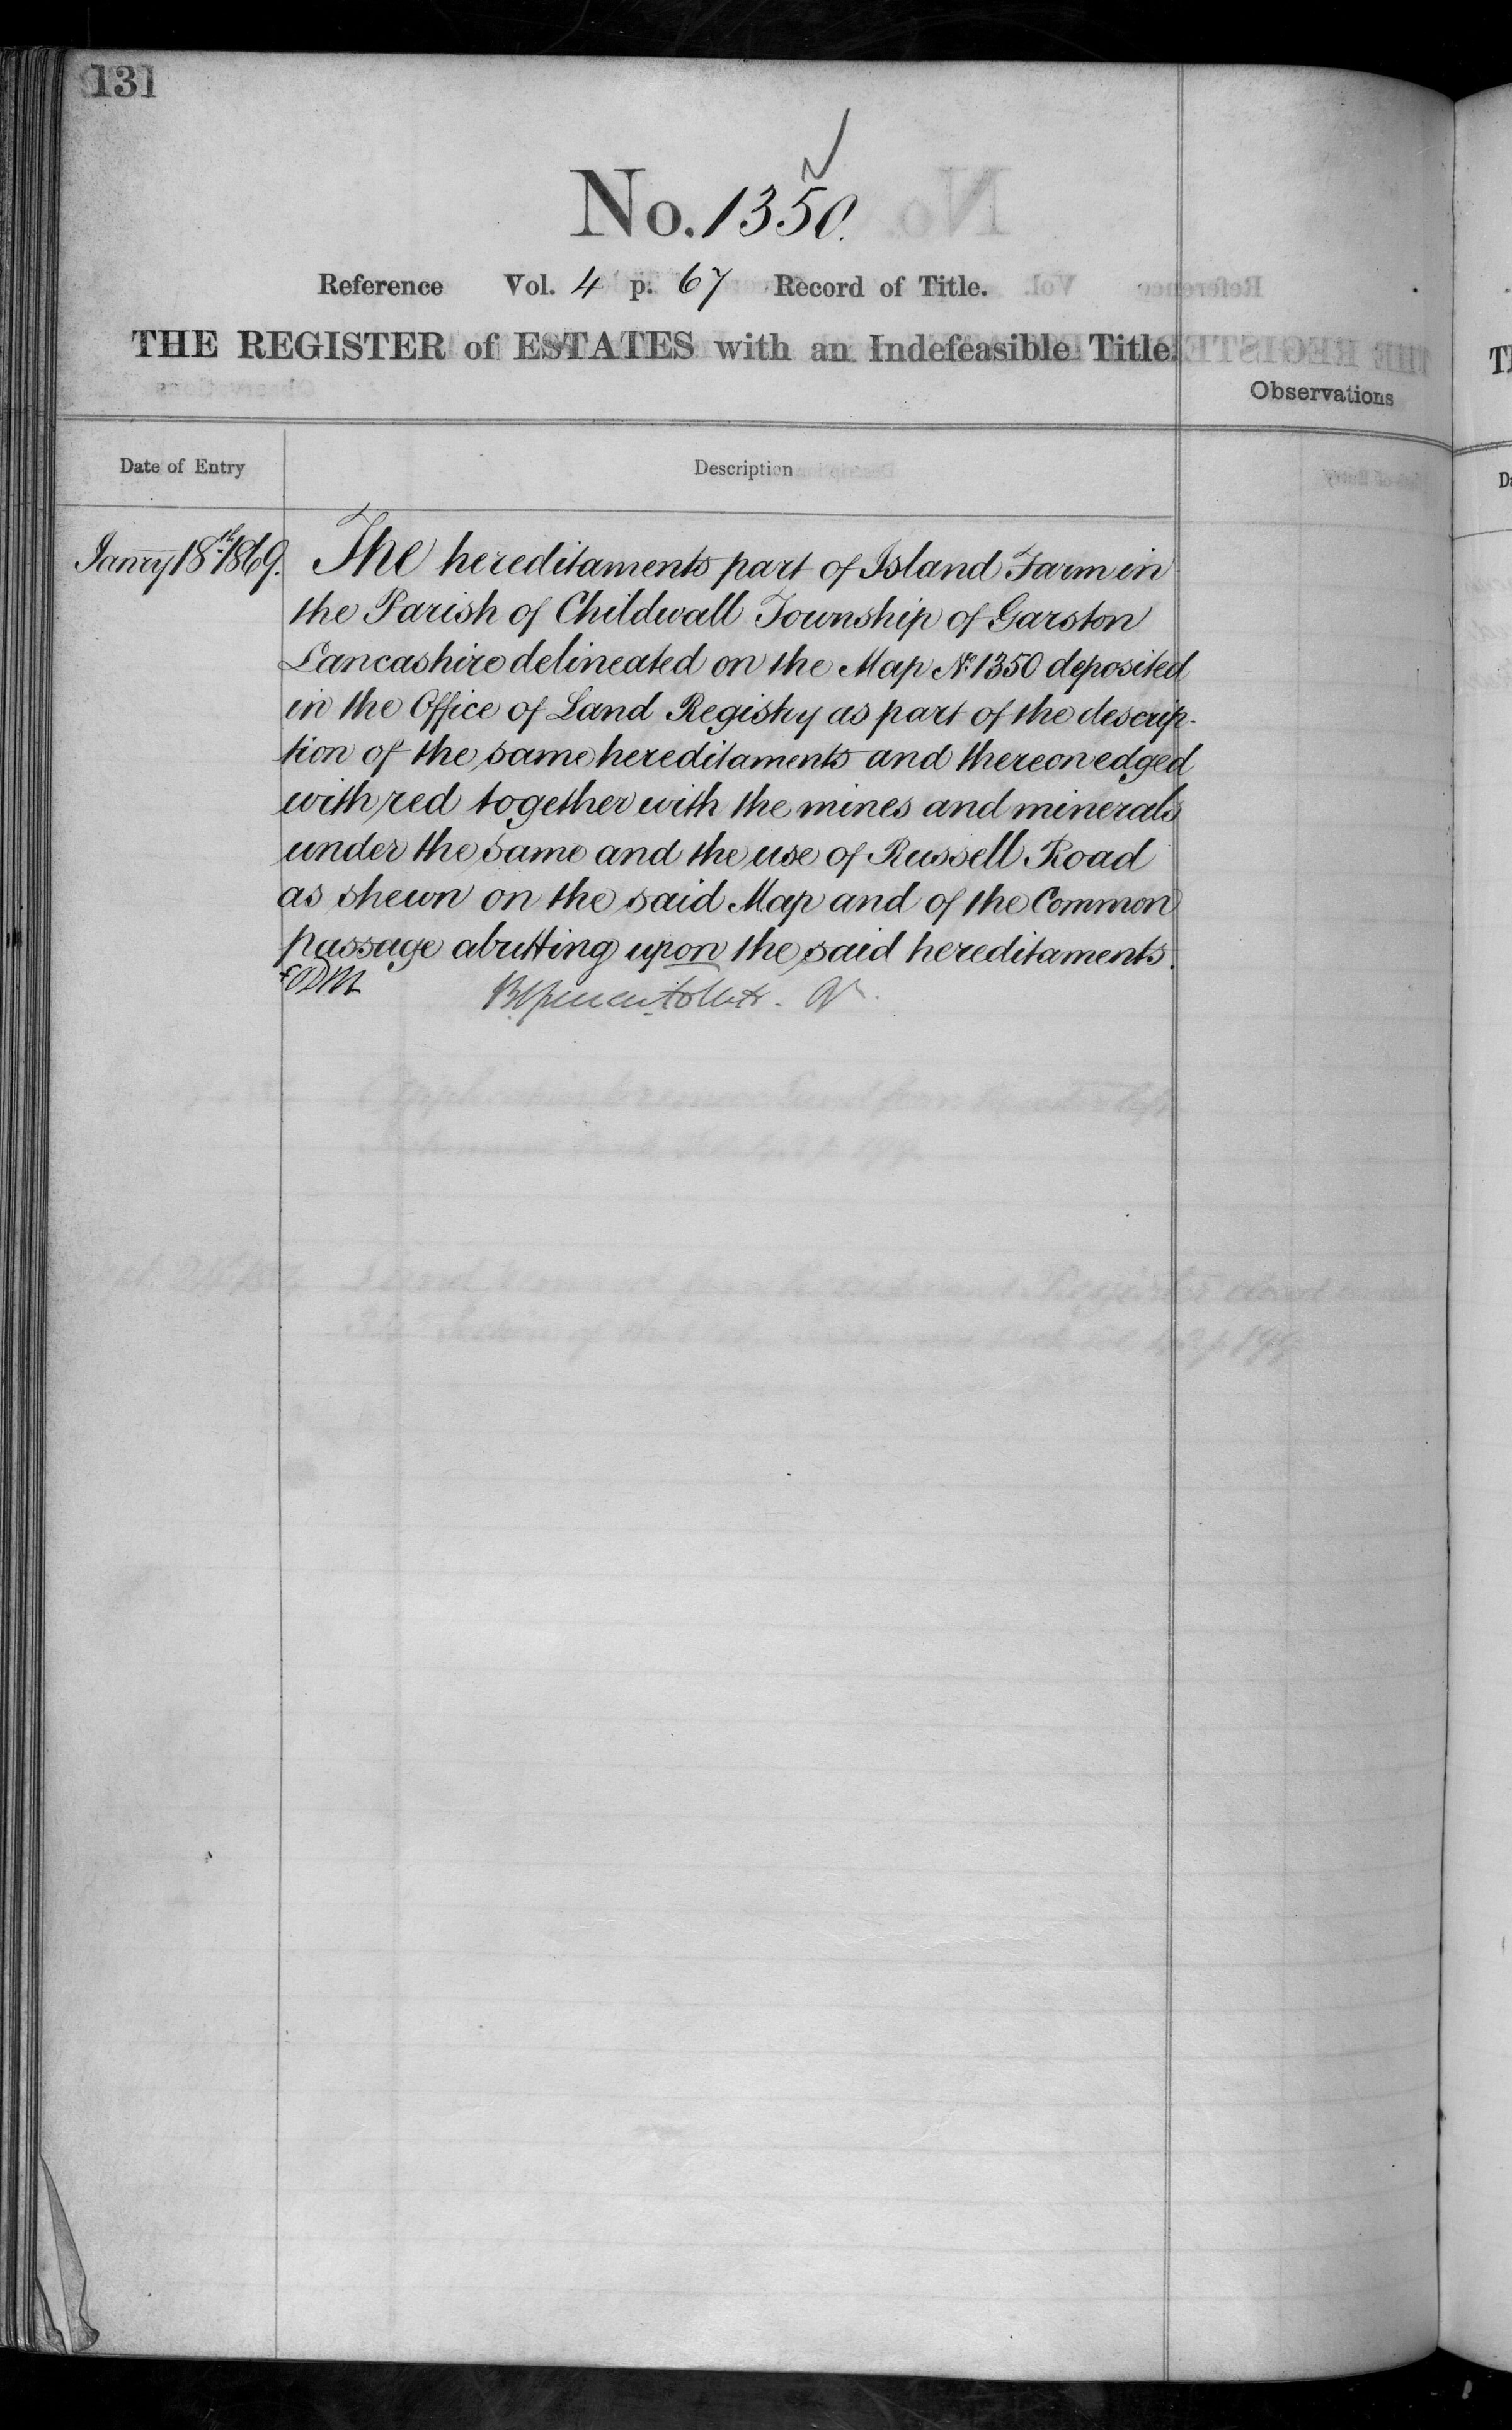 131
No. 1350.
Reference Vol. 4 p. 67 Record of Title.
THE REGISTER of ESTATES with an Indefeasible Title
Observations
Date of Entry
Description
Janry 18th 1869. The hereditaments part of Island Farm in
the Parish of Childwall Township of Garston
Lancashire delineated on the Map No. 1350 deposited
in the Office of Land Registry as part of the descrip-
tion of the same hereditaments and thereon edged
with red together with the mines and minerals
under the same and the use of Russell Road
as shewn on the said Map and of the Common
passage abutting upon the said hereditaments.